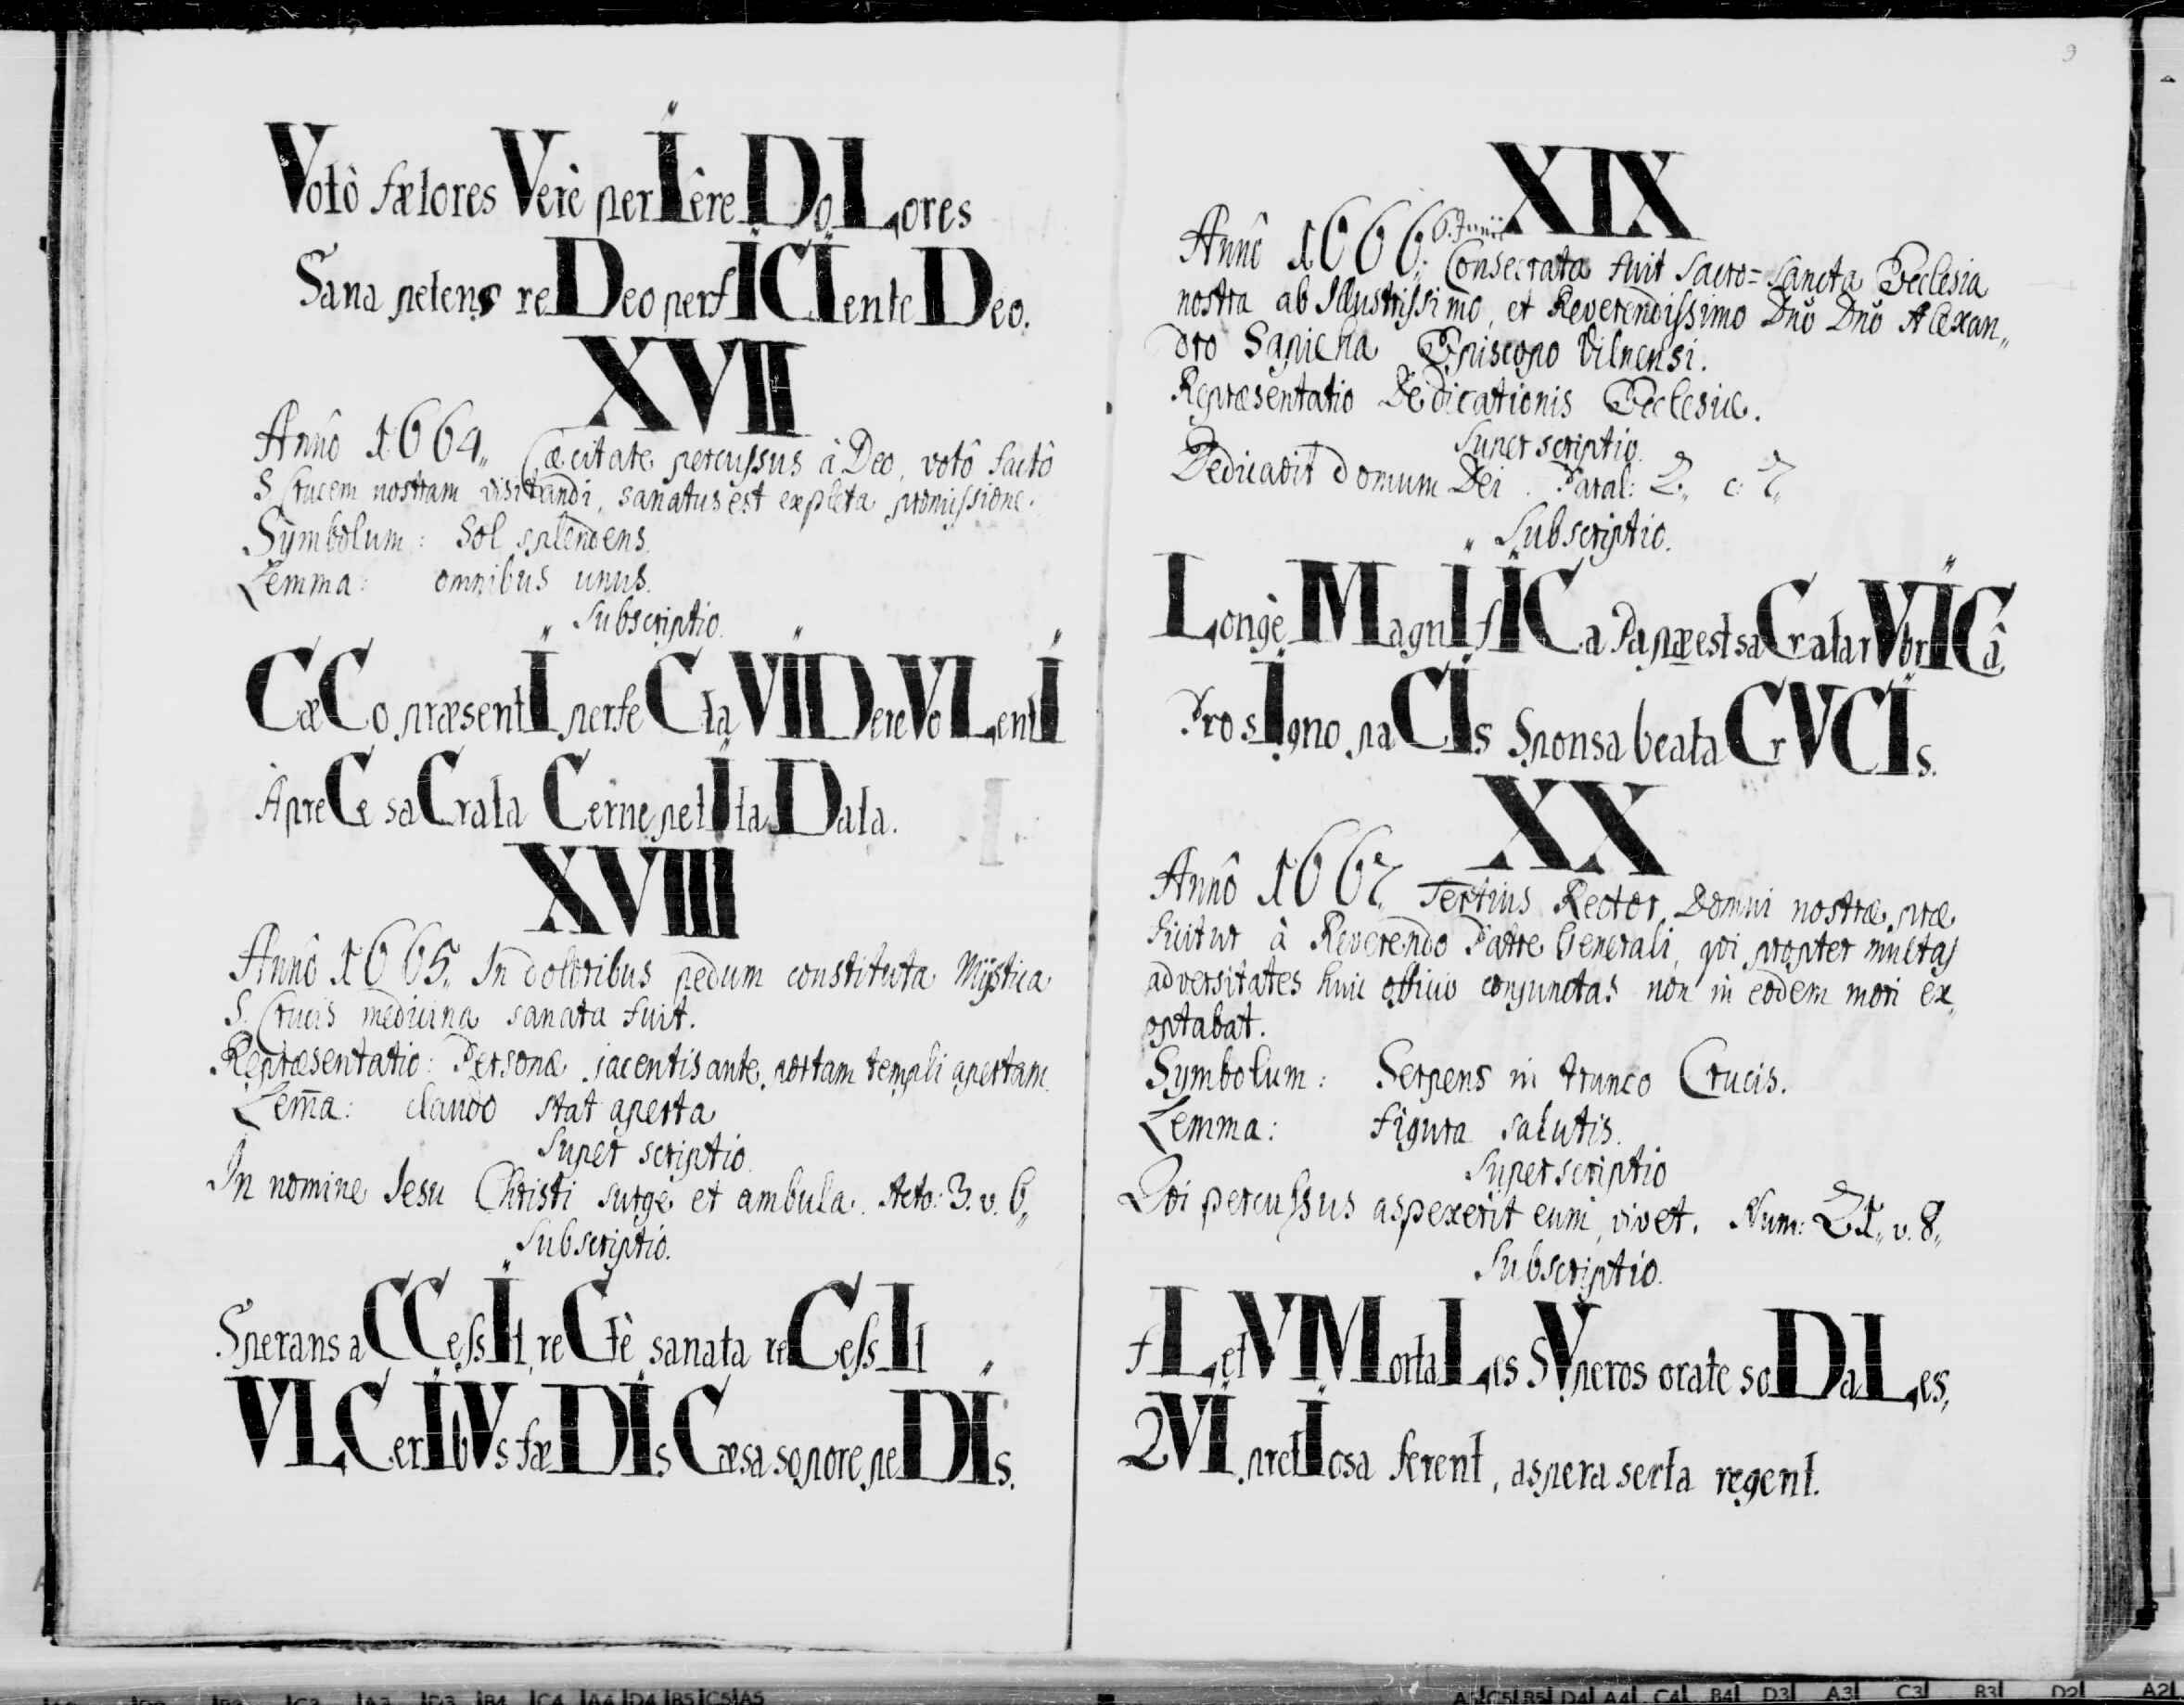 Votô fætores Verè perIêre DoLores
Sana petens reDeo perfICIente Deo.
XVII
Annô 1664. Cæcitate percussus à Deo, votô factô
S. Crucem nostram visitandi, sanatus est expleta promissione.
Symbolum: Sol splendens.
Lemma: omnibus unus.
Subscriptio.
CæCo præsentI perfeCta VIDere VoLentI
A preCe saCrata Cerne petIta Data.
XVIII
Annô 1665. In doloribus pedum constituta Mystica
S. Crucis medicina sanata fuit.
Repræsentatio: Personæ jacentis ante portam templi apertam.
Lem̄a: claudo stat aperta
Super scriptio.
In nomine Jesu Christi surge et ambula. Acto: 3. v. 6,,
Subscriptio.
Sperans aCCessIt, reCtè sanata reCessIt
VLCerIbVs fæDIs Cæsa sopore peDIs.
9
XIX
Annô 1666. 6. Junii
Consecrata fuit Sacro=Sancta Ecclesia
nostra ab Illustrissimo, et Reverendissimo Dnō Dnō Alexan,,
dro Sapieha Episcopo Vilnensi.
Repræsentatio Dedicationis Ecclesiæ.
Super scriptio.
Dedicavit domum Dei. Paral: 2,, c: 7,,
Subscriptio.
Longè MagnIfICa Papæ est saCrata rVbrICâ,
Pro sIgno paCIs Sponsa beata CrVCIs.
XX
Annô 1667. Tertius Rector Domui nostræ præ
ficitur à Reverendo Patre Generali, qvi propter multas
adversitates huic officio conjunctas non in eodem mori ex,
optabat.
Symbolum: Serpens in trunco Crucis.
Lemma: figura salutis.
Super scriptio
Qvi percussus aspexerit eum, vivet. Num: 21,, v. 8,,
Subscriptio.
fLetV MortaLes SVperos orate soDaLes,
QVI pretIosa ferent, aspera serta regent.